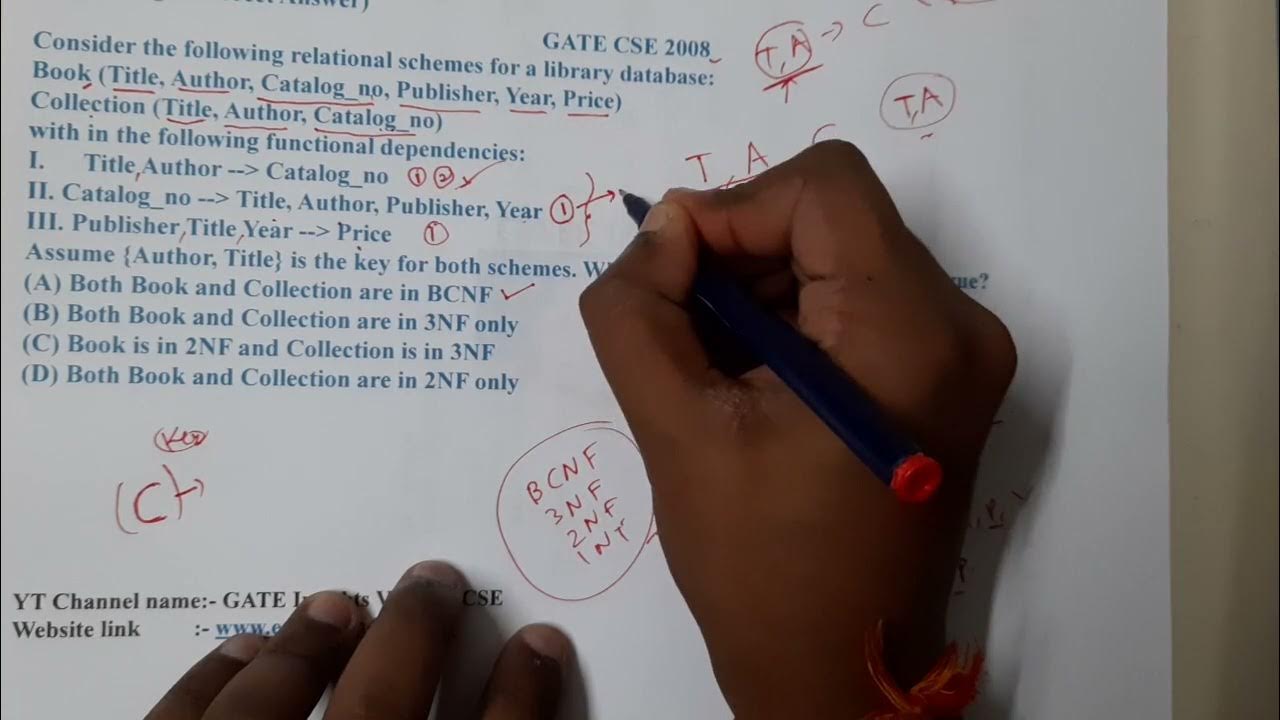 ect Answer)
GATE CSE 2008
Consider the following relational schemes for a library database:
Book (Title, Author, Catalog_no, Publisher, Year, Price)
Collection (Title, Author, Catalog_no)
with in the following functional dependencies:
I. Title,Author --> Catalog_no ① ②
II. Catalog_no --> Title, Author, Publisher, Year ①
III. Publisher,Title,Year --> Price ①
Assume {Author, Title} is the key for both schemes. W ue?
(A) Both Book and Collection are in BCNF ✓
(B) Both Book and Collection are in 3NF only
(C) Book is in 2NF and Collection is in 3NF
(D) Both Book and Collection are in 2NF only
T, A → C
T,A
T A C
(C)
BCNF
3NF
2NF
1NF
YT Channel name:- GATE CSE
Website link :- www.e